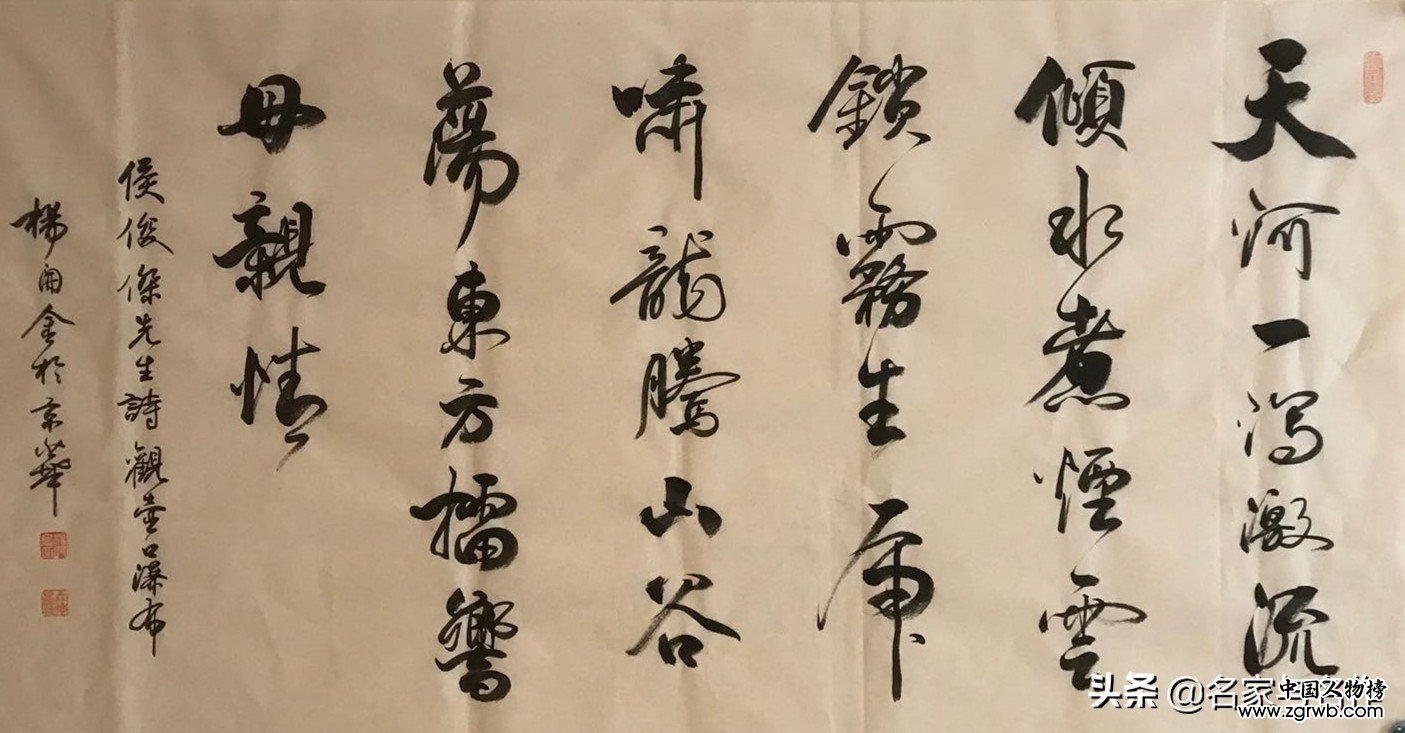 天河一瀉激流
傾水煮煙雲
鎖霧生虎
嘯龍騰山谷
蕩東方擂響
母親情
侯俊傑先生詩觀壺口瀑布
楊金於京華
头条 @名家
中国人物榜
www.zgrwb.com